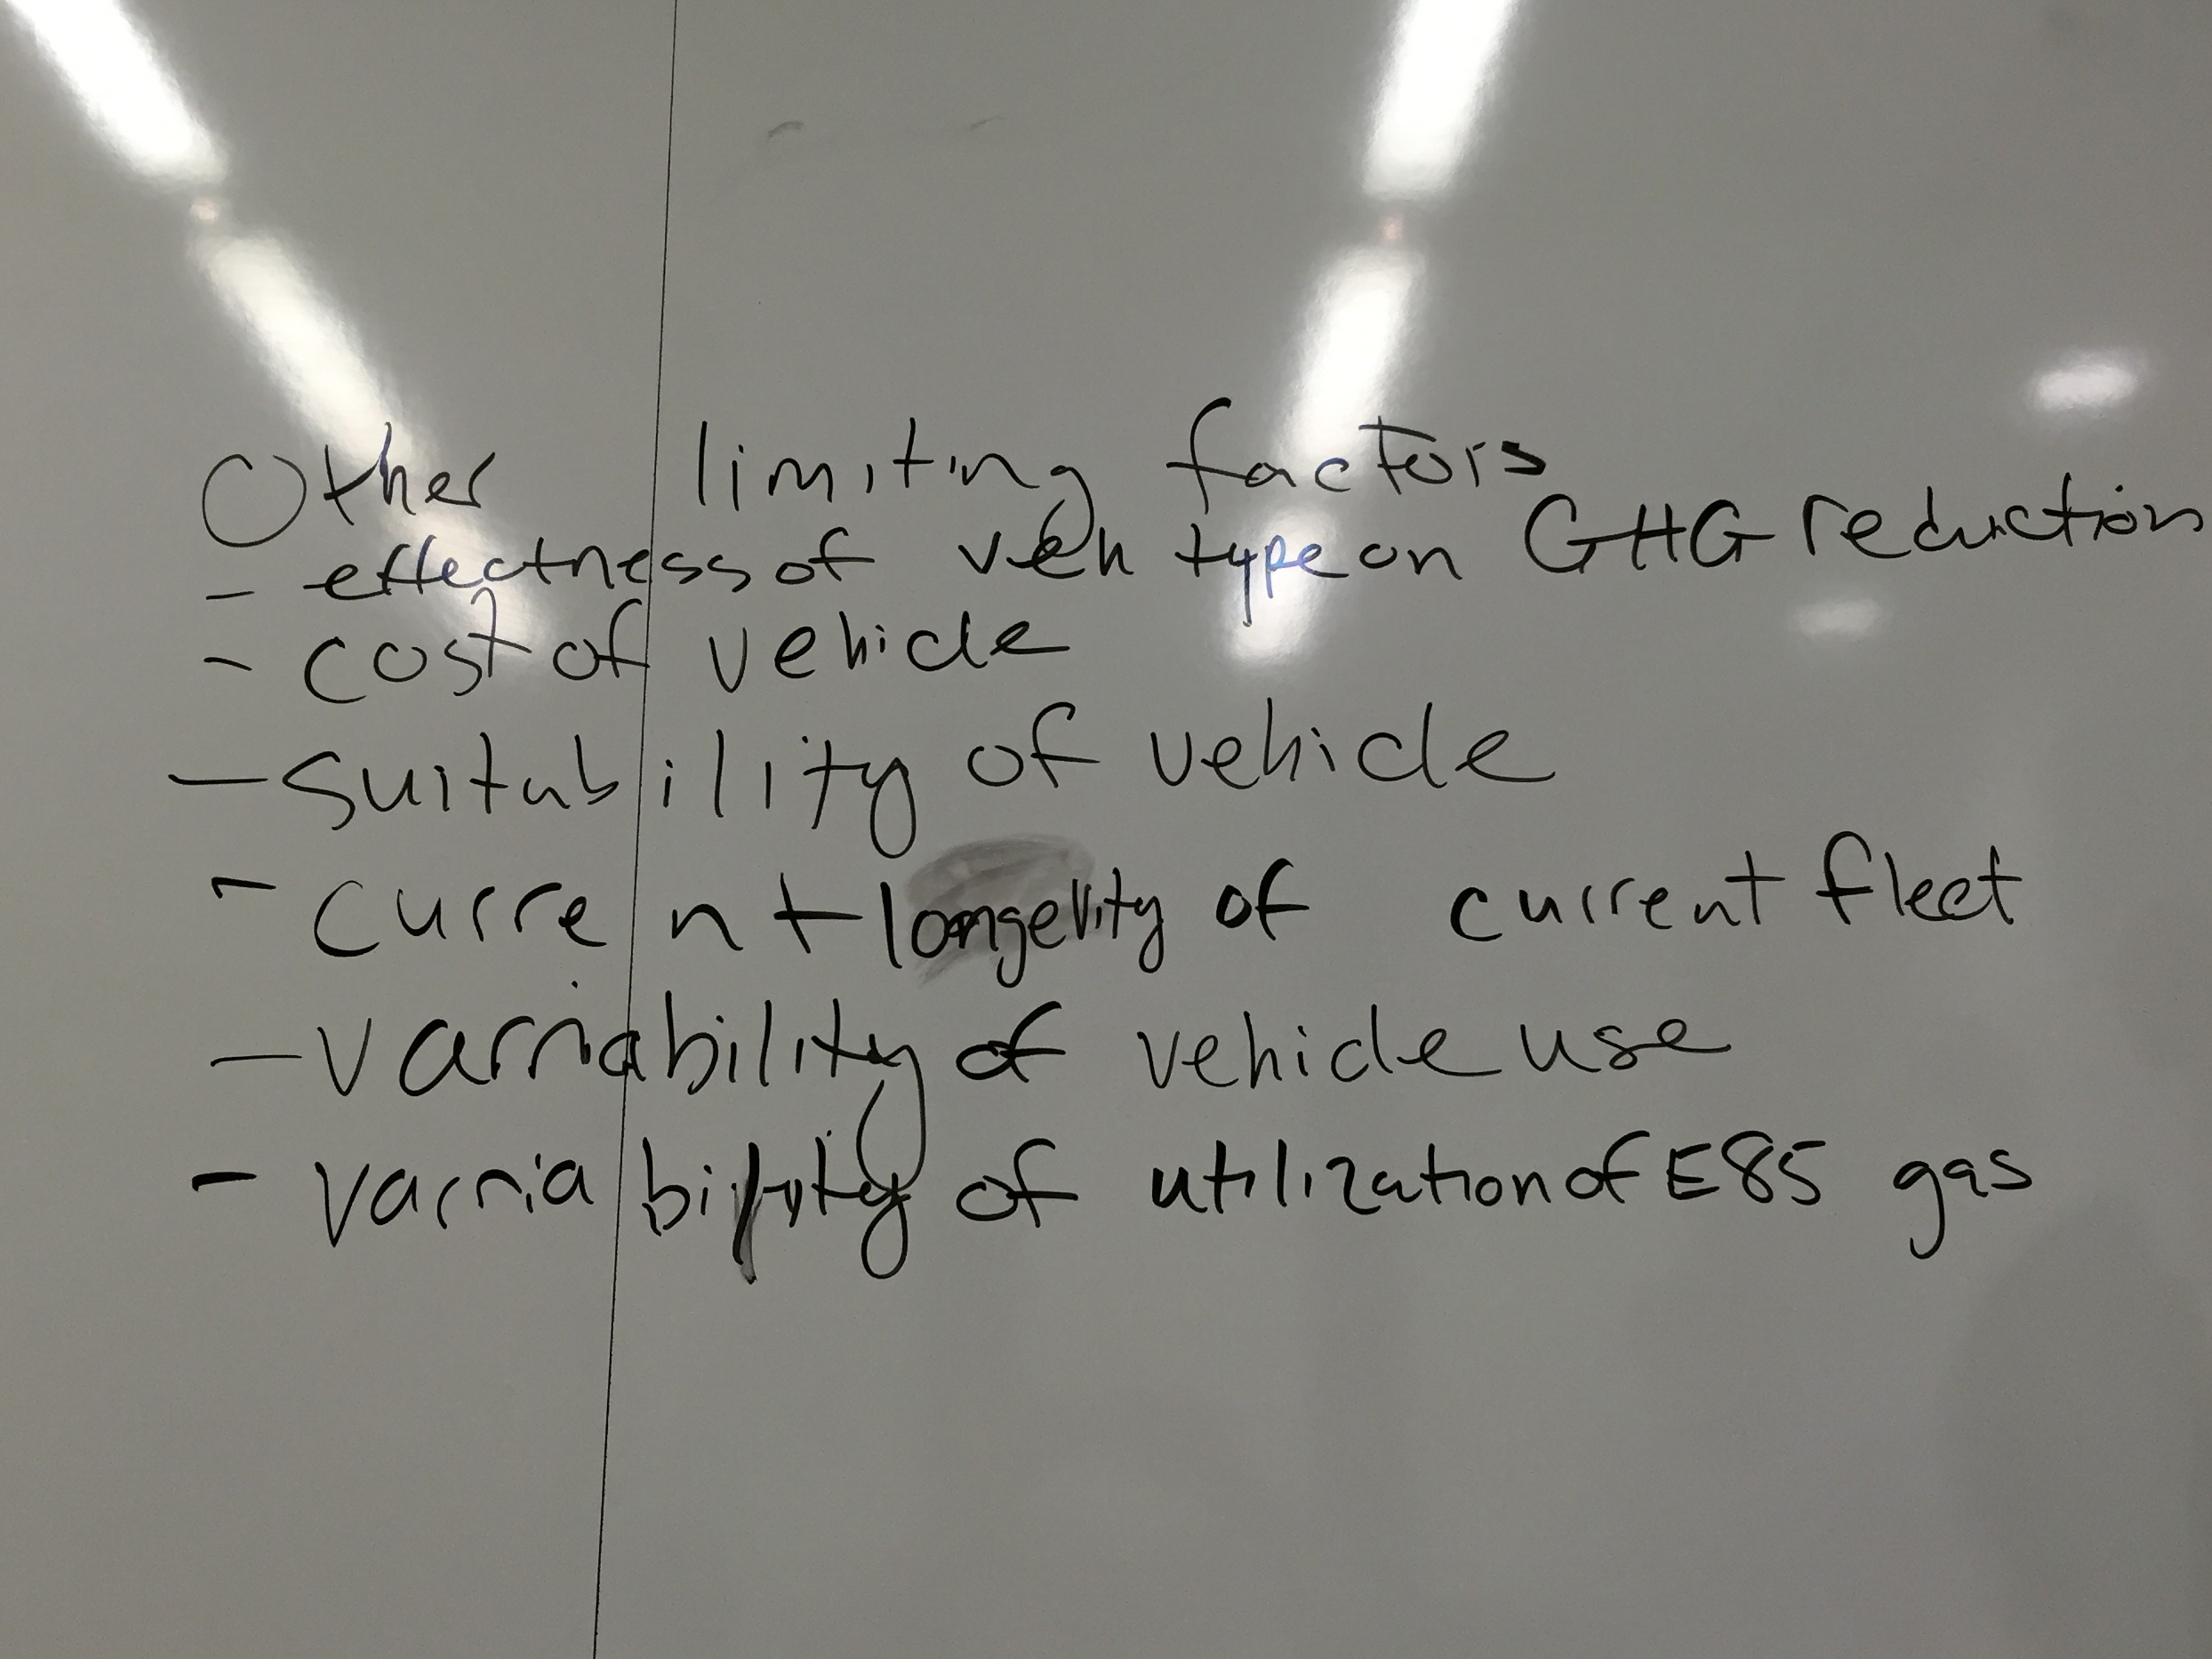 Other limiting factors
- effectness of veh type on GHG reduction
- cost of vehicle
- suitability of vehicle
- current longevity of current fleet
- varriability of vehicle use
- varriability of utilization of E85 gas